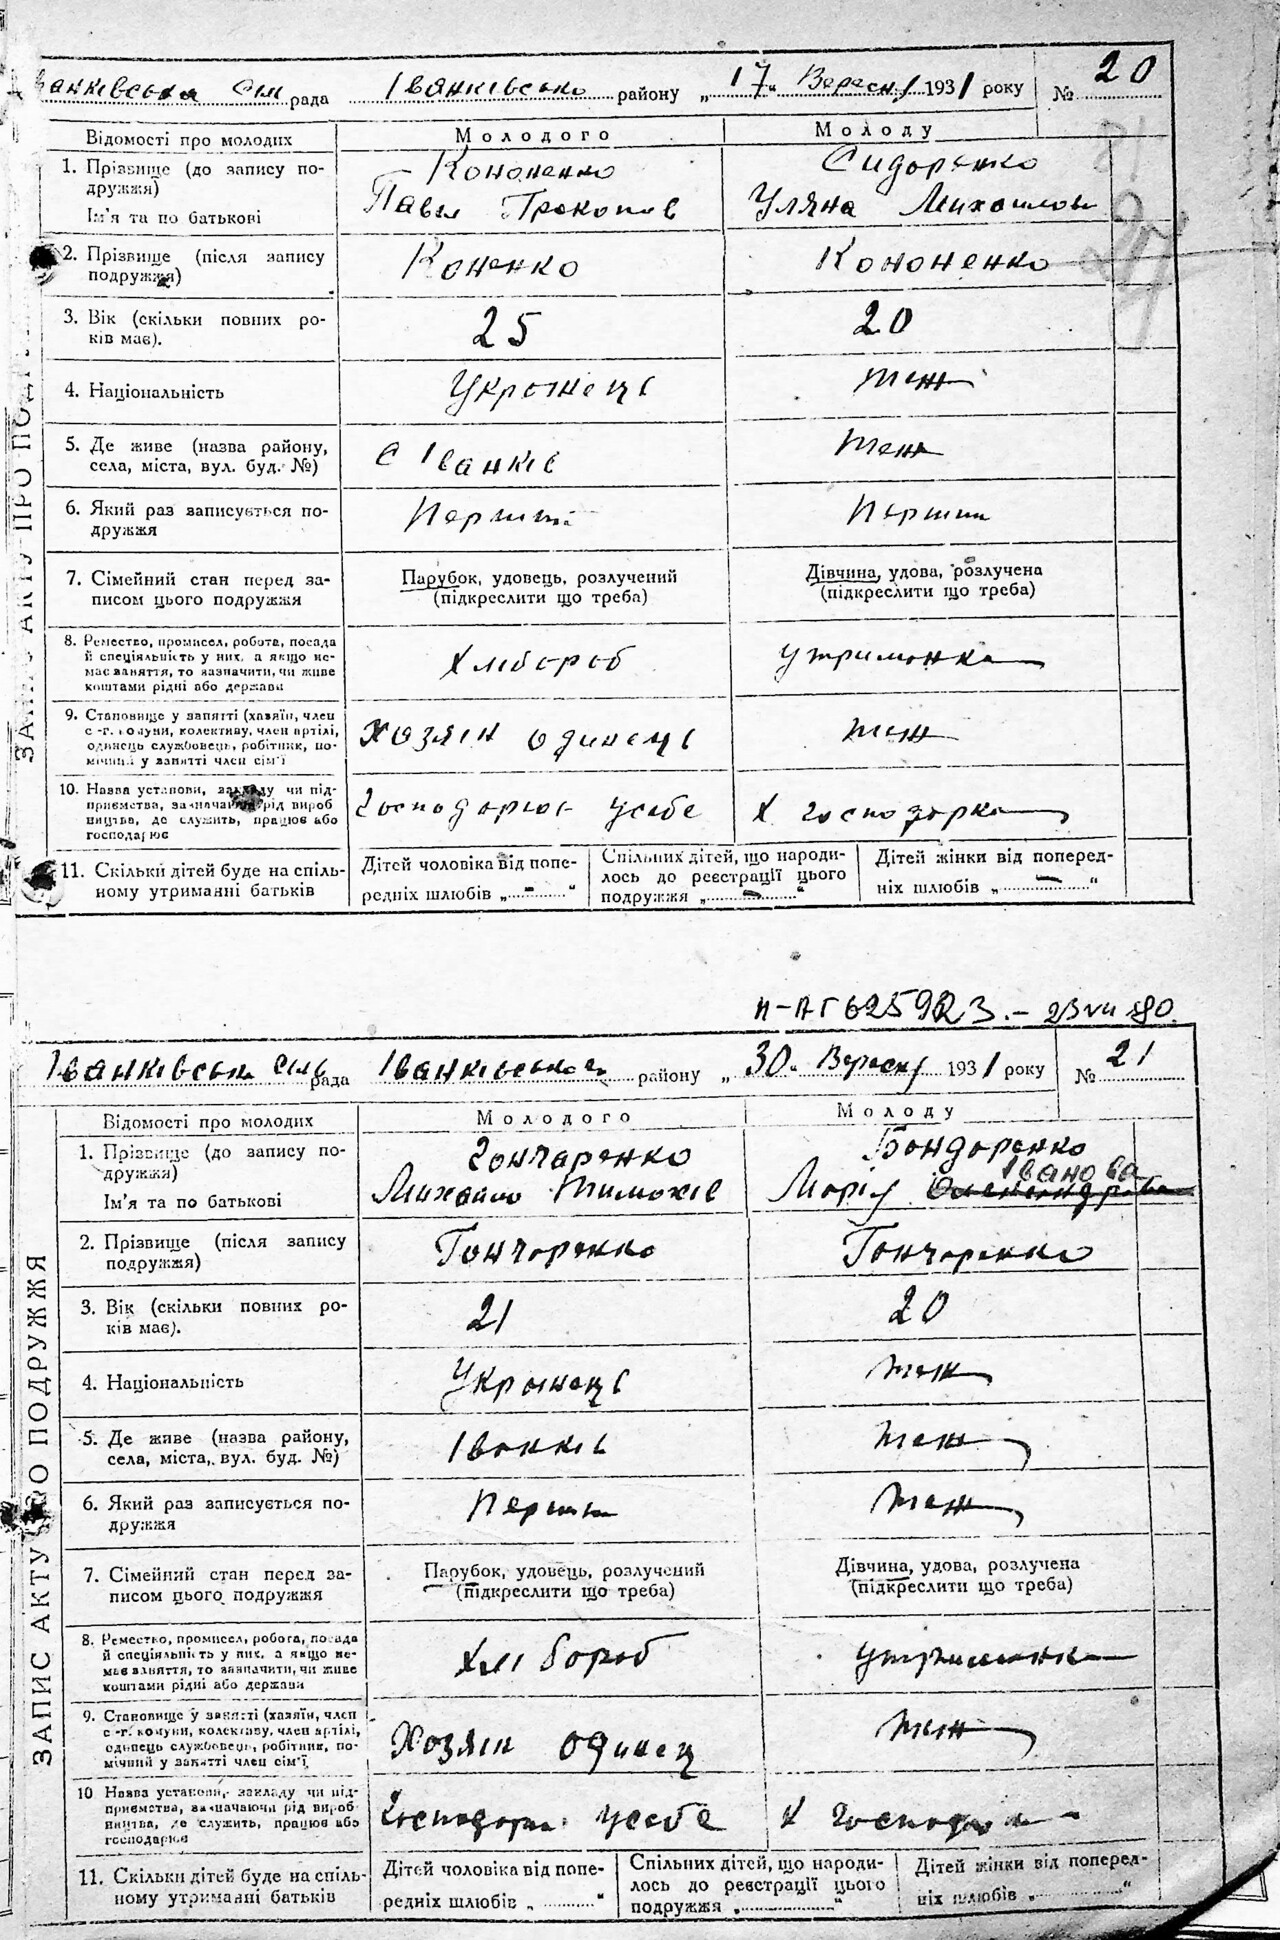 Іванківська сіл рада Іванківсько району „17“ Вересня 1931 року № 20
Відомості про молодих Молодого Молоду
1. Прізвище (до запису по- Кононенко Сидоренко
дружжя)
Ім'я та по батькові Павел Прокопів Уляна Михаилов
2. Прізвище (після запису Коненко Кононенко
подружжя)
3. Вік (скільки повних ро- 25 20
ків має).
4. Національність Українець теж
5. Де живе (назва району, с Іванків теж
села, міста, вул. буд. №)
6. Який раз записується по- Перший Перший
дружжя
7. Сімейний стан перед за- Парубок, удовець, розлучений Дівчина, удова, розлучена
писом цього подружжя (підкреслити що треба) (підкреслити що треба)
8. Ремество, промисел, робота, посада
й спеціяльність у них, а якщо не- Хлібороб утриманка
має заняття, то зазначити, чи живе
коштами рідні або держави
9. Становище у занятті (хазяїн, член
с.-г. комуни, колективу, член артілі, Хозяін одинець теж
одинець службовець, робітник, по-
мічний у занятті член сім'ї
10. Назва установи, закладу чи під-
приємства, зазначаючи рід вироб Господорює усебе Х господарка
ництва, де служить, працює або
господарює
11. Скільки дітей буде на спіль- Дітей чоловіка від попе- Спільних дітей, що народи- Дітей жінки від поперед-
ному утриманні батьків редніх шлюбів „ - “ лось до реєстрації цього ніх шлюбів „ - “
подружжя „ - “
ІІ-АГ 625923.- 23 VII 80.
Іванківськ сіль рада Іванківського району „30“ Вересня 1931 року № 21
Відомості про молодих Молодого Молоду
1. Прізвище (до запису по- Гончаренко Бондоренко
дружжя) Іванова
Ім'я та по батькові Михаило Тимохів Марія Олександрівна
2. Прізвище (після запису Гончоренко Гончоренко
подружжя)
3. Вік (скільки повних ро- 21 20
ків має).
4. Національність Українець теж
5. Де живе (назва району, Іванків теж
села, міста, вул. буд. №)
6. Який раз записується по- Перший теж
дружжя
7. Сімейний стан перед за- Парубок, удовець, розлучений Дівчина, удова, розлучена
писом цього подружжя (підкреслити що треба) (підкреслити що треба)
8. Ремество, промисел, робота, посада
й спеціяльність у них, а якщо не- Хлібороб утриманка
має заняття, то зазначити, чи живе
коштами рідні або держави
9. Становище у занятті (хазяїн, член
с.-г. комуни, колективу, член артілі, Хозяін одинец теж
одинець службовець, робітник, по-
мічний у занятті член сім'ї
10 Назва установи, закладу чи під-
приємства, зазначаючи рід вироб усебе Х
ництва, де служить, працює або
господарює
11. Скільки дітей буде на спіль- Дітей чоловіка від попе- Спільних дітей, що народи- Дітей жінки від поперед-
ному утриманні батьків редніх шлюбів „ “ лось до реєстрації цього ніх шлюбів „ “
подружжя „ “
ЗАПИС АКТУ ПРО ПОДРУЖЖЯ